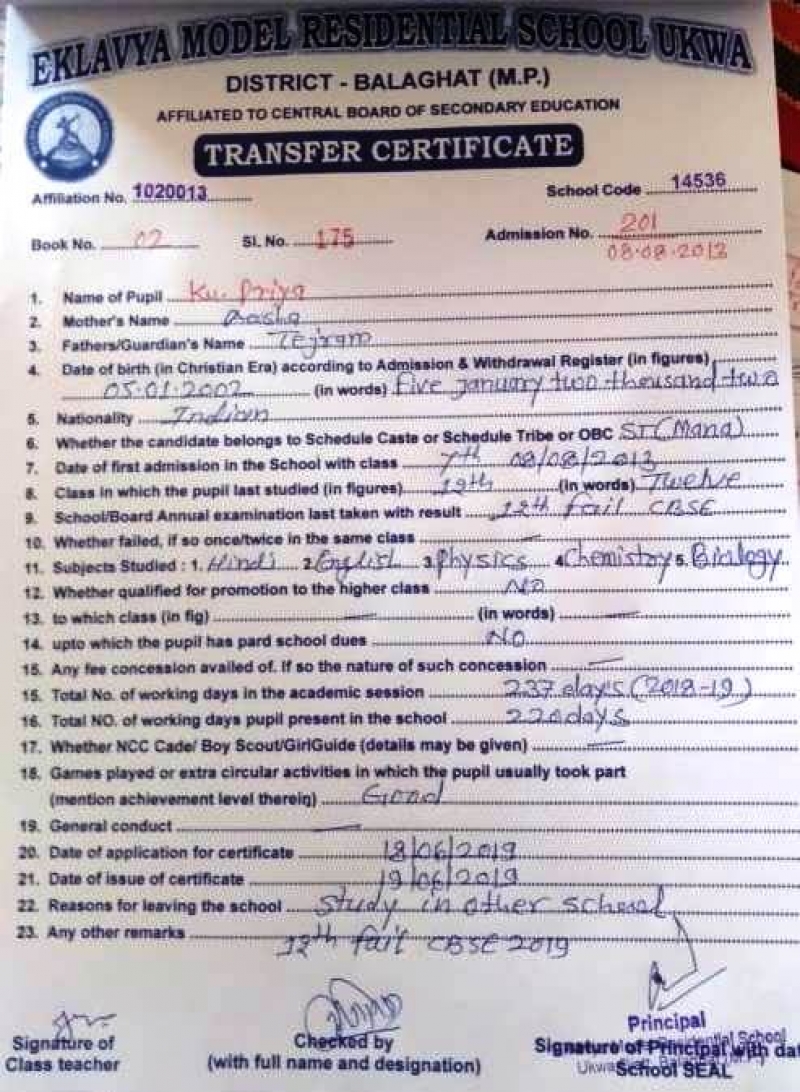 EKLAVYA MODEL RESIDENTIAL SCHOOL UKWA
DISTRICT - BALAGHAT (M.P.)
AFFILIATED TO CENTRAL BOARD OF SECONDARY EDUCATION
TRANSFER CERTIFICATE
Affiliation No. 1020013 School Code 14536
Book No. 02 Sl. No. 175 Admission No. 201
08.08.2013
1. Name of Pupil Ku. Priya
2. Mother's Name Aasha
3. Fathers/Guardian's Name Tejram
4. Date of birth (in Christian Era) according to Admission & Withdrawal Register (in figures)
05.01.2002 (in words) Five january two thousand two
5. Nationality Indian
6. Whether the candidate belongs to Schedule Caste or Schedule Tribe or OBC ST (Mana)
7. Date of first admission in the School with class 7th 08/08/2013
8. Class in which the pupil last studied (in figures) 12th (in words) Twelve
9. School/Board Annual examination last taken with result 12th fail CBSE
10. Whether failed, if so once/twice in the same class —
11. Subjects Studied : 1. Hindi 2. English 3. Physics 4. Chemistry 5. Biology
12. Whether qualified for promotion to the higher class NO
13. to which class (in fig) — (in words) —
14. upto which the pupil has pard school dues NO
15. Any fee concession availed of. If so the nature of such concession —
15. Total No. of working days in the academic session 237 days (2018-19)
16. Total NO. of working days pupil present in the school 220 days
17. Whether NCC Cade/ Boy Scout/GirlGuide (details may be given) —
18. Games played or extra circular activities in which the pupil usually took part
(mention achievement level therein) Good
19. General conduct —
20. Date of application for certificate 18/06/2019
21. Date of issue of certificate 19/06/2019
22. Reasons for leaving the school Study in other school
23. Any other remarks 12th fail CBSE 2019
Signature of Checked by Principal
Class teacher (with full name and designation) Signature of Principal with dat
School SEAL